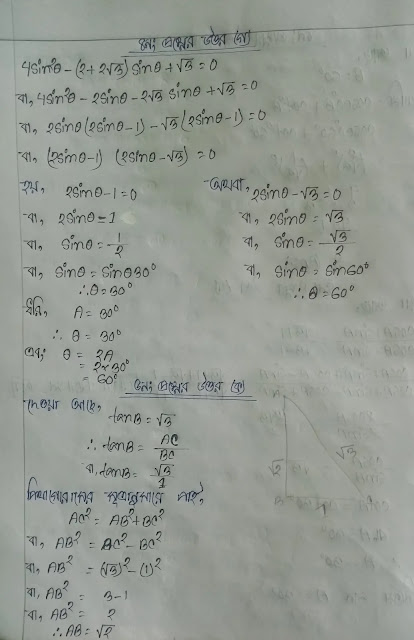 ৪নং প্রশ্নের উত্তর (গ)
4sin²θ - (2+2√3) sinθ + √3 = 0
বা, 4sin²θ - 2sinθ - 2√3 sinθ + √3 = 0
বা, 2sinθ(2sinθ-1) - √3(2sinθ-1) = 0
বা, (2sinθ-1) (2sinθ-√3) = 0
হয়, 2sinθ-1=0
বা, 2sinθ=1
বা, sinθ = 1/2
বা, sinθ = sinθ30°
∴ θ = 30°
অথবা, 2sinθ-√3=0
বা, 2sinθ = √3
বা, sinθ = √3/2
বা, sinθ = sin60°
∴ θ = 60°
ধরি, A = 30°
∴ θ = 30°
এবং θ = 2A
= 2×30°
= 60°
৩নং প্রশ্নের উত্তর (ক)
দেওয়া আছে,
tanB = √3
∴ tanB = AC/BC
বা, tanB = √3/1
পিথাগোরাসের সূত্রানুসারে পাই,
AC² = AB² + BC²
বা, AB² = AC² - BC²
বা, AB² = (√3)² - (1)²
বা, AB² = 3-1
বা, AB² = 2
∴ AB = √2
√2
√3
B